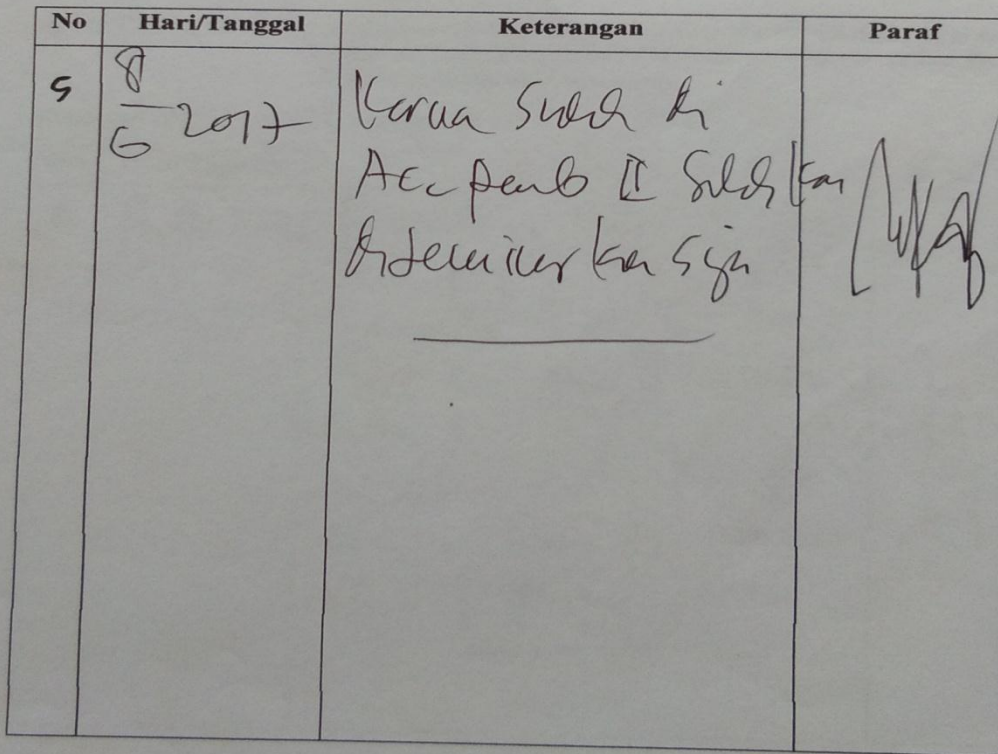 No Hari/Tanggal Keterangan Paraf
5 8/6 2017 Karna Sudah di
Acc pemb II Silahkan
diseminarkan saja